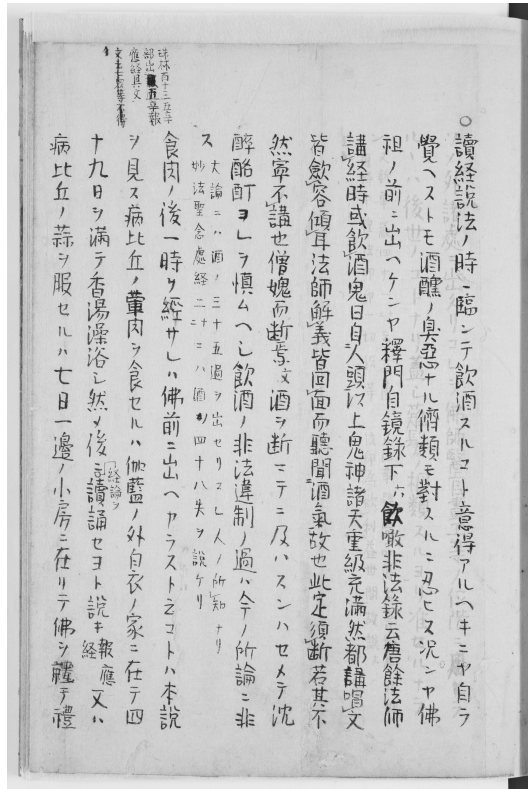 珠林百十三五辛
部出
五辛報
應経具文
○讀経説法ノ時ニ臨ンテ飲酒スルコト意得アルヘキニヤ自ラ
覺ヘストモ酒醺ノ臭惡ナル儕類モ對スルニ忍ヒス況ンヤ佛
祖ノ前ニ出ヘケンヤ釋門自鏡錄下六飲噉非法錄云唐餘法師
講経時或飲酒鬼曰自人頭以上鬼神諸天重級充滿然都講唱文
皆歛容傾耳法師解義皆回面而聽聞酒氣故也此定須斷若其不
然寧不講也僧媿而断焉文酒ヲ断ニテニ及ハスンハセメテ沈
醉酩酊ヨレヲ慎ムヘシ飲酒ノ非法違制ノ過ハ今ノ所論ニ非
ス
大論ニハ酒ノ三十五過ヲ出セリコレ人ノ所知ナリ
妙法聖念處経二ニハ酒ノ四十八失ヲ説ケリ
食肉ノ後一時ヲ經サレハ佛前ニ出ヘカラスト云コトハ本説
ヲ見ス病比丘ノ葷肉ヲ食セルハ伽藍ノ外白衣ノ家ニ在テ四
十九日ヲ滿テ香湯澡浴シ然メ後ニ経論ヲ讀誦セヨト説キ報應経文ハ
病比丘ノ蒜ヲ服セルハ七日一邊ノ小房ニ在リテ佛ヲ禮テ禮